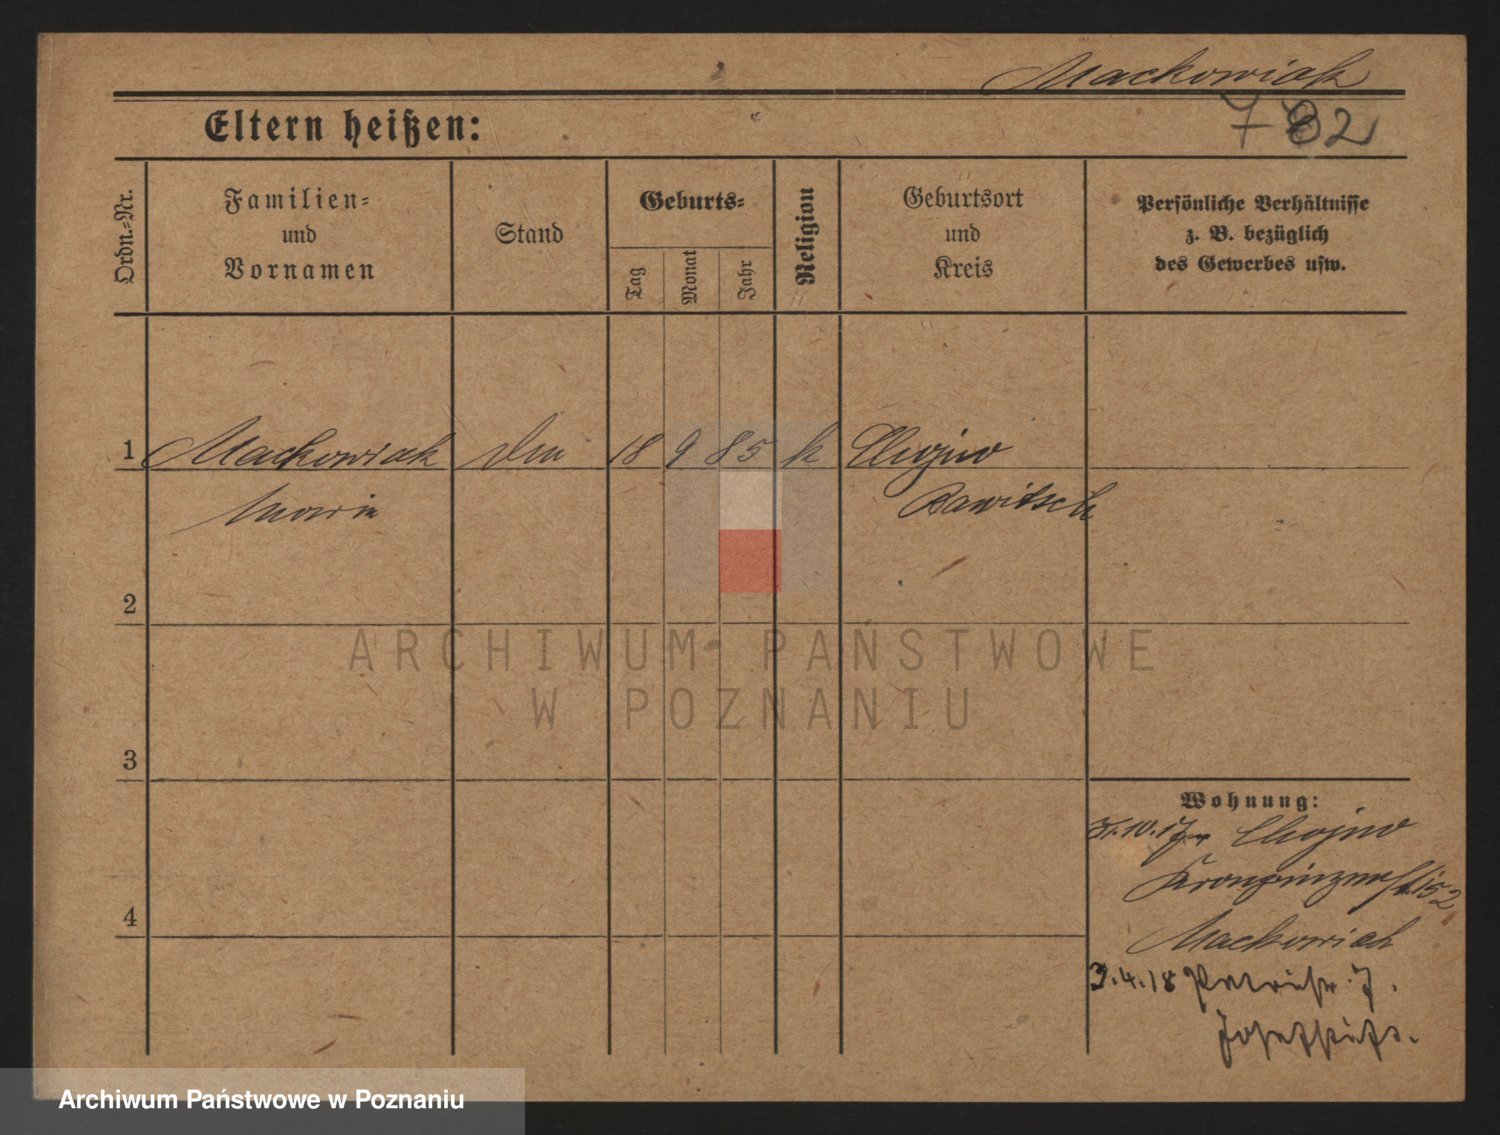 Mackowiak
782
Eltern heißen:
Ordn.-Nr.
Familien-
und
Vornamen
Stand
Geburts-
Tag
Monat
Jahr
Religion
Geburtsort
und
Kreis
Persönliche Verhältnisse
z. B. bezüglich
des Gewerbes usw.
1 Mackowiak 18 9 85 k Chojno
Maria Rawitsch
2
ARCHIWUM PAŃSTWOWE
W POZNANIU
3
Wohnung:
31.10.17 Chojno
Kronprinzenst. 152
4
Mackowiak
3.4.18 7.
Josefstift.
Archiwum Państwowe w Poznaniu